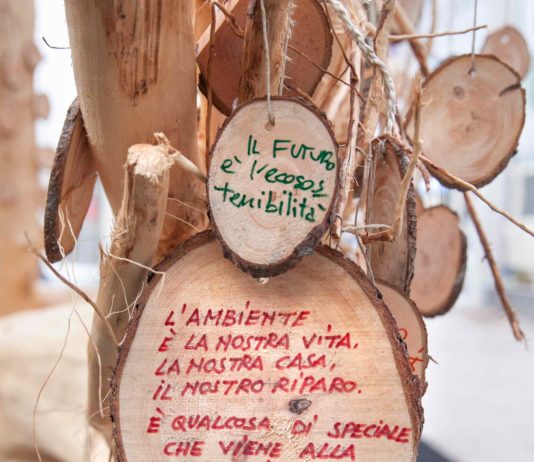 IL FUTURO
è l'ecosos
tenibilità
L'AMBIENTE
È LA NOSTRA VITA,
LA NOSTRA CASA,
IL NOSTRO RIPARO.
È QUALCOSA DI SPECIALE
CHE VIENE ALLA